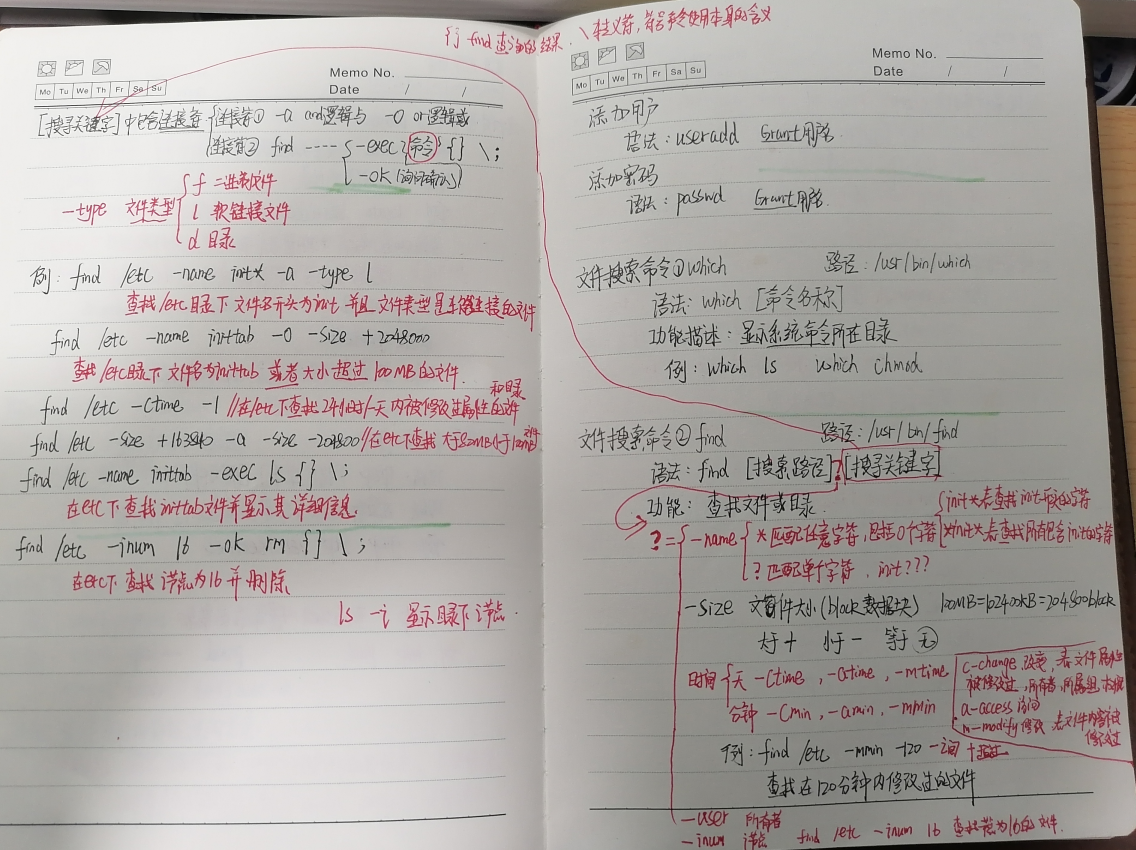 {} find 查询的结果. \ 转义符,符号命令使用本身的含义
Memo No.
Mo Tu We Th Fr Sa Su
Date / /
[搜寻关键字]中包含连接符
连接符① -a and逻辑与 -o or逻辑或
连接符② find ---- -exec 命令 {} \;
-ok (询问确认)
-type 文件类型
f 二进制文件
l 软链接文件
d 目录
例: find /etc -name init* -a -type l
查找/etc目录下文件名开头为init 并且文件类型是软链接的文件
find /etc -name inittab -o -size +2048000
查找/etc目录下文件名为inittab 或者大小超过100MB的文件.
find /etc -ctime -1 //在/etc下查找24小时/一天内被修改过属性的文件
和目录
find /etc -size +163840 -a -size -204800 //在etc下查找大于80MB小于100MB文件
find /etc -name inittab -exec ls {} \;
在etc下查找inittab文件并显示其详细信息.
find /etc -inum 16 -ok rm {} \;
在etc下查找i节点为16并删除
ls -i 显示目录下i节点.
Memo No.
Mo Tu We Th Fr Sa Su
Date / /
添加用户
语法: useradd Grant用户名
添加密码
语法: passwd Grant用户名.
文件搜索命令①which 路径: /usr/bin/which
语法: which [命令名称]
功能描述: 显示系统命令所在目录
例: which ls which chmod
文件搜索命令②find 路径: /usr/bin/find
语法: find [搜索路径] ? [搜寻关键字]
功能: 查找文件或目录
init*表查找init开头的字符
? = -name * 匹配任意字符,包括0个字符 *init*表查找所有包含init的字符
? 匹配单个字符, init???
-size 文件大小(block数据块) 100MB=102400KB=204800block
大于+ 小于- 等于 无
时间 天 -ctime , -atime , -mtime
分钟 -cmin , -amin , -mmin
c-change 改变,表文件属性
被修改过,所有者,所属组,权限
a-access 访问
m-modify 修改 表文件内容被
修改过
例: find /etc -mmin -120 -之间 +超过
查找在120分钟内修改过的文件
-user 所有者
-inum i节点 find /etc -inum 16 查找i节点为16的文件.